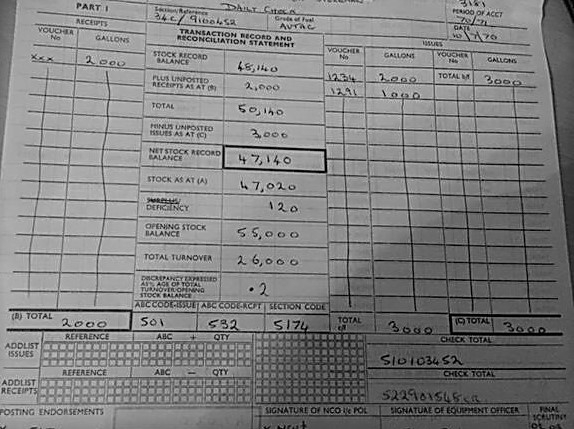 DAILY CHECK
PART 1
Section/Reference
34C/9100452
Grade of Fuel
AVTAG
3181
PERIOD OF ACCT
70/71
DATE
RECEIPTS
VOUCHER No
GALLONS
TRANSACTION RECORD AND
RECONCILIATION STATEMENT
ISSUES
VOUCHER No
GALLONS
VOUCHER No
GALLONS
xxx 2000
STOCK RECORD BALANCE 48,140
1234 2000 TOTAL b/f 3000
PLUS UNPOSTED RECEIPTS AS AT (B) 2,000
1291 1000
TOTAL 50,140
MINUS UNPOSTED ISSUES AS AT (C) 3,000
NET STOCK RECORD BALANCE 47,140
STOCK AS AT (A) 47,020
SURPLUS/
DEFICIENCY 120
OPENING STOCK BALANCE 55,000
TOTAL TURNOVER 26,000
DISCREPANCY EXPRESSED
AS % AGE OF TOTAL
TURNOVER/OPENING
STOCK BALANCE ·2
ABC CODE-ISSUE ABC CODE-RCPT SECTION CODE
(B) TOTAL 2000 501 532 5174 TOTAL c/f 3000 (C) TOTAL 3000
ADDLIST ISSUES
REFERENCE ABC + QTY
CHECK TOTAL
510103452
ADDLIST RECEIPTS
REFERENCE ABC — QTY
CHECK TOTAL
522901548
POSTING ENDORSEMENTS
SIGNATURE OF NCO i/c POL
SIGNATURE OF EQUIPMENT OFFICER
FINAL SCRUTINY